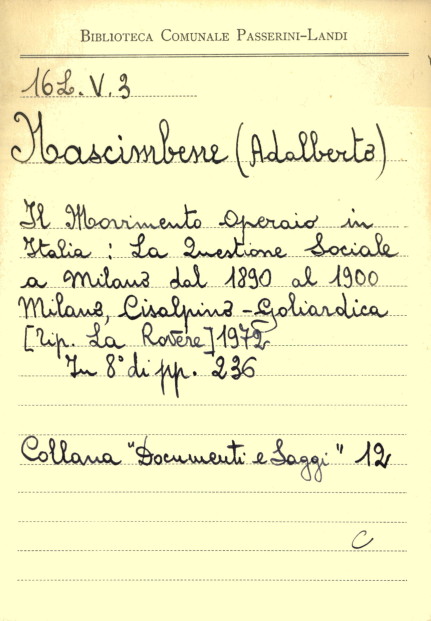 BIBLIOTECA COMUNALE PASSERINI-LANDI
16L.V.3
Nascimbene (Adalberto)
Il Movimento Operaio in
Italia : La Questione Sociale
a Milano dal 1890 al 1900
Milano, Cisalpino - Goliardica
[Tip. La Rovere] 1972
In 8° di pp. 236
Collana "Documenti e Saggi" 12
C